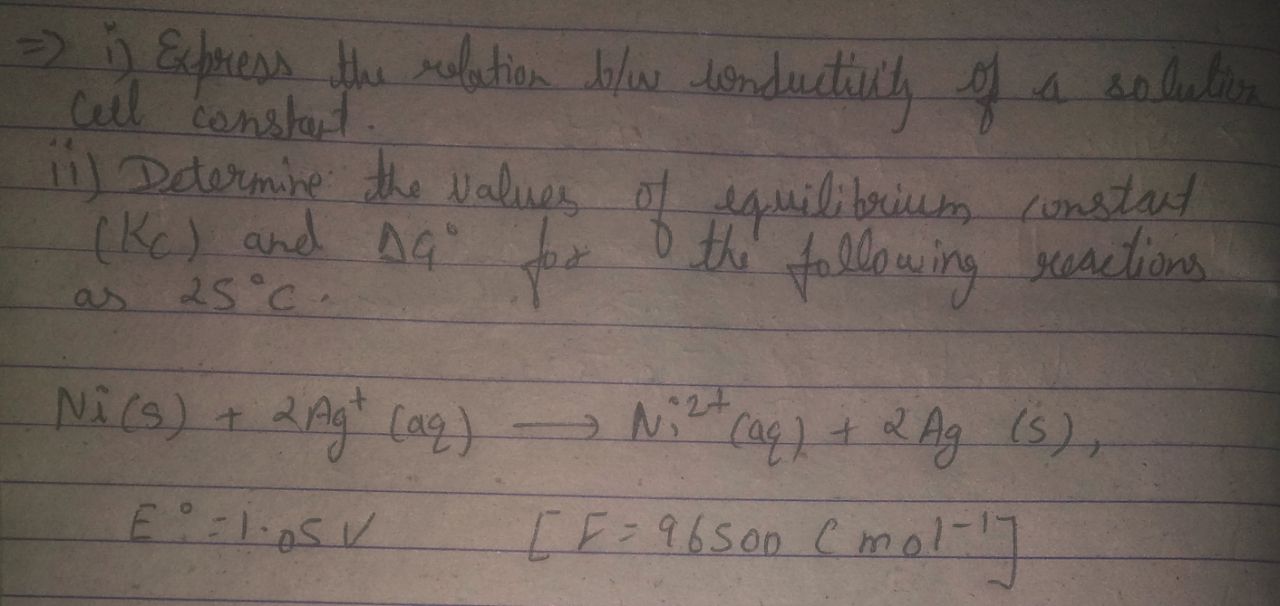 => i) Express the relation b/w conductivity of a solution
cell constant.
ii) Determine the values of equilibrium constant
(Kc) and ΔG° for the following reactions
as 25°C.
Ni(s) + 2Ag⁺ (aq) ⟶ Ni²⁺ (aq) + 2Ag (s),
E° = 1.05 V [F = 96500 C mol⁻¹]